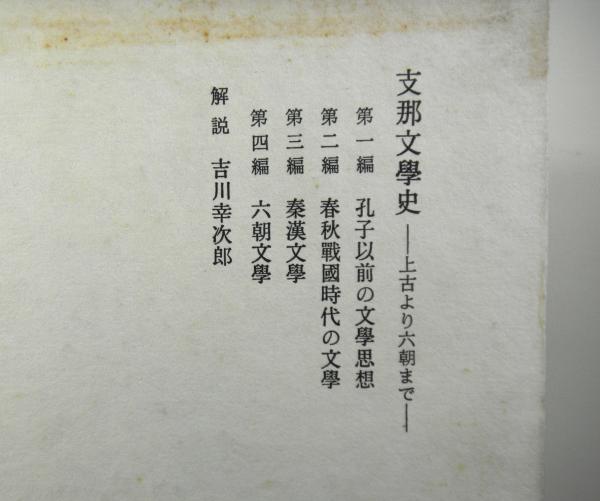 支那文學史――上古より六朝まで――
第一編　孔子以前の文學思想
第二編　春秋戰國時代の文學
第三編　秦漢文學
第四編　六朝文學
解説　吉川幸次郎